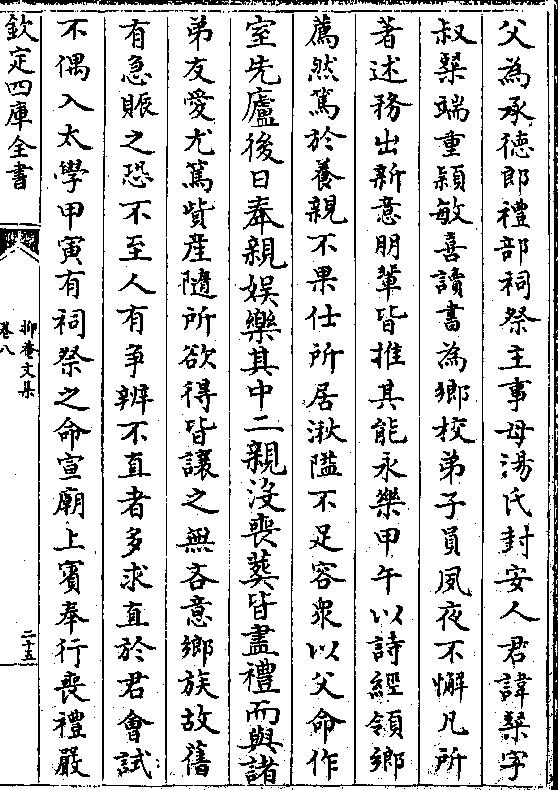 父為承徳郎禮部祠祭主事母湯氏封安人君諱琹字
叔琹端重穎敏喜讀書為鄉校弟子員夙夜不懈凡所
著述務出新意朋輩皆推其能永樂甲午以詩經領鄉
薦然篤於養親不果仕所居湫隘不足容衆以父命作
室先廬後日奉親娱樂其中二親没喪葬皆盡禮而與諸
弟友愛尤篤貲産隨所欲得皆讓之無吝意鄉族故舊
有急賑之恐不至人有爭辨不直者多求直於君會試
不偶入太學甲寅有祠祭之命宣廟上賓奉行喪禮嚴
欽定四庫全書
抑菴文集
卷八
二十五